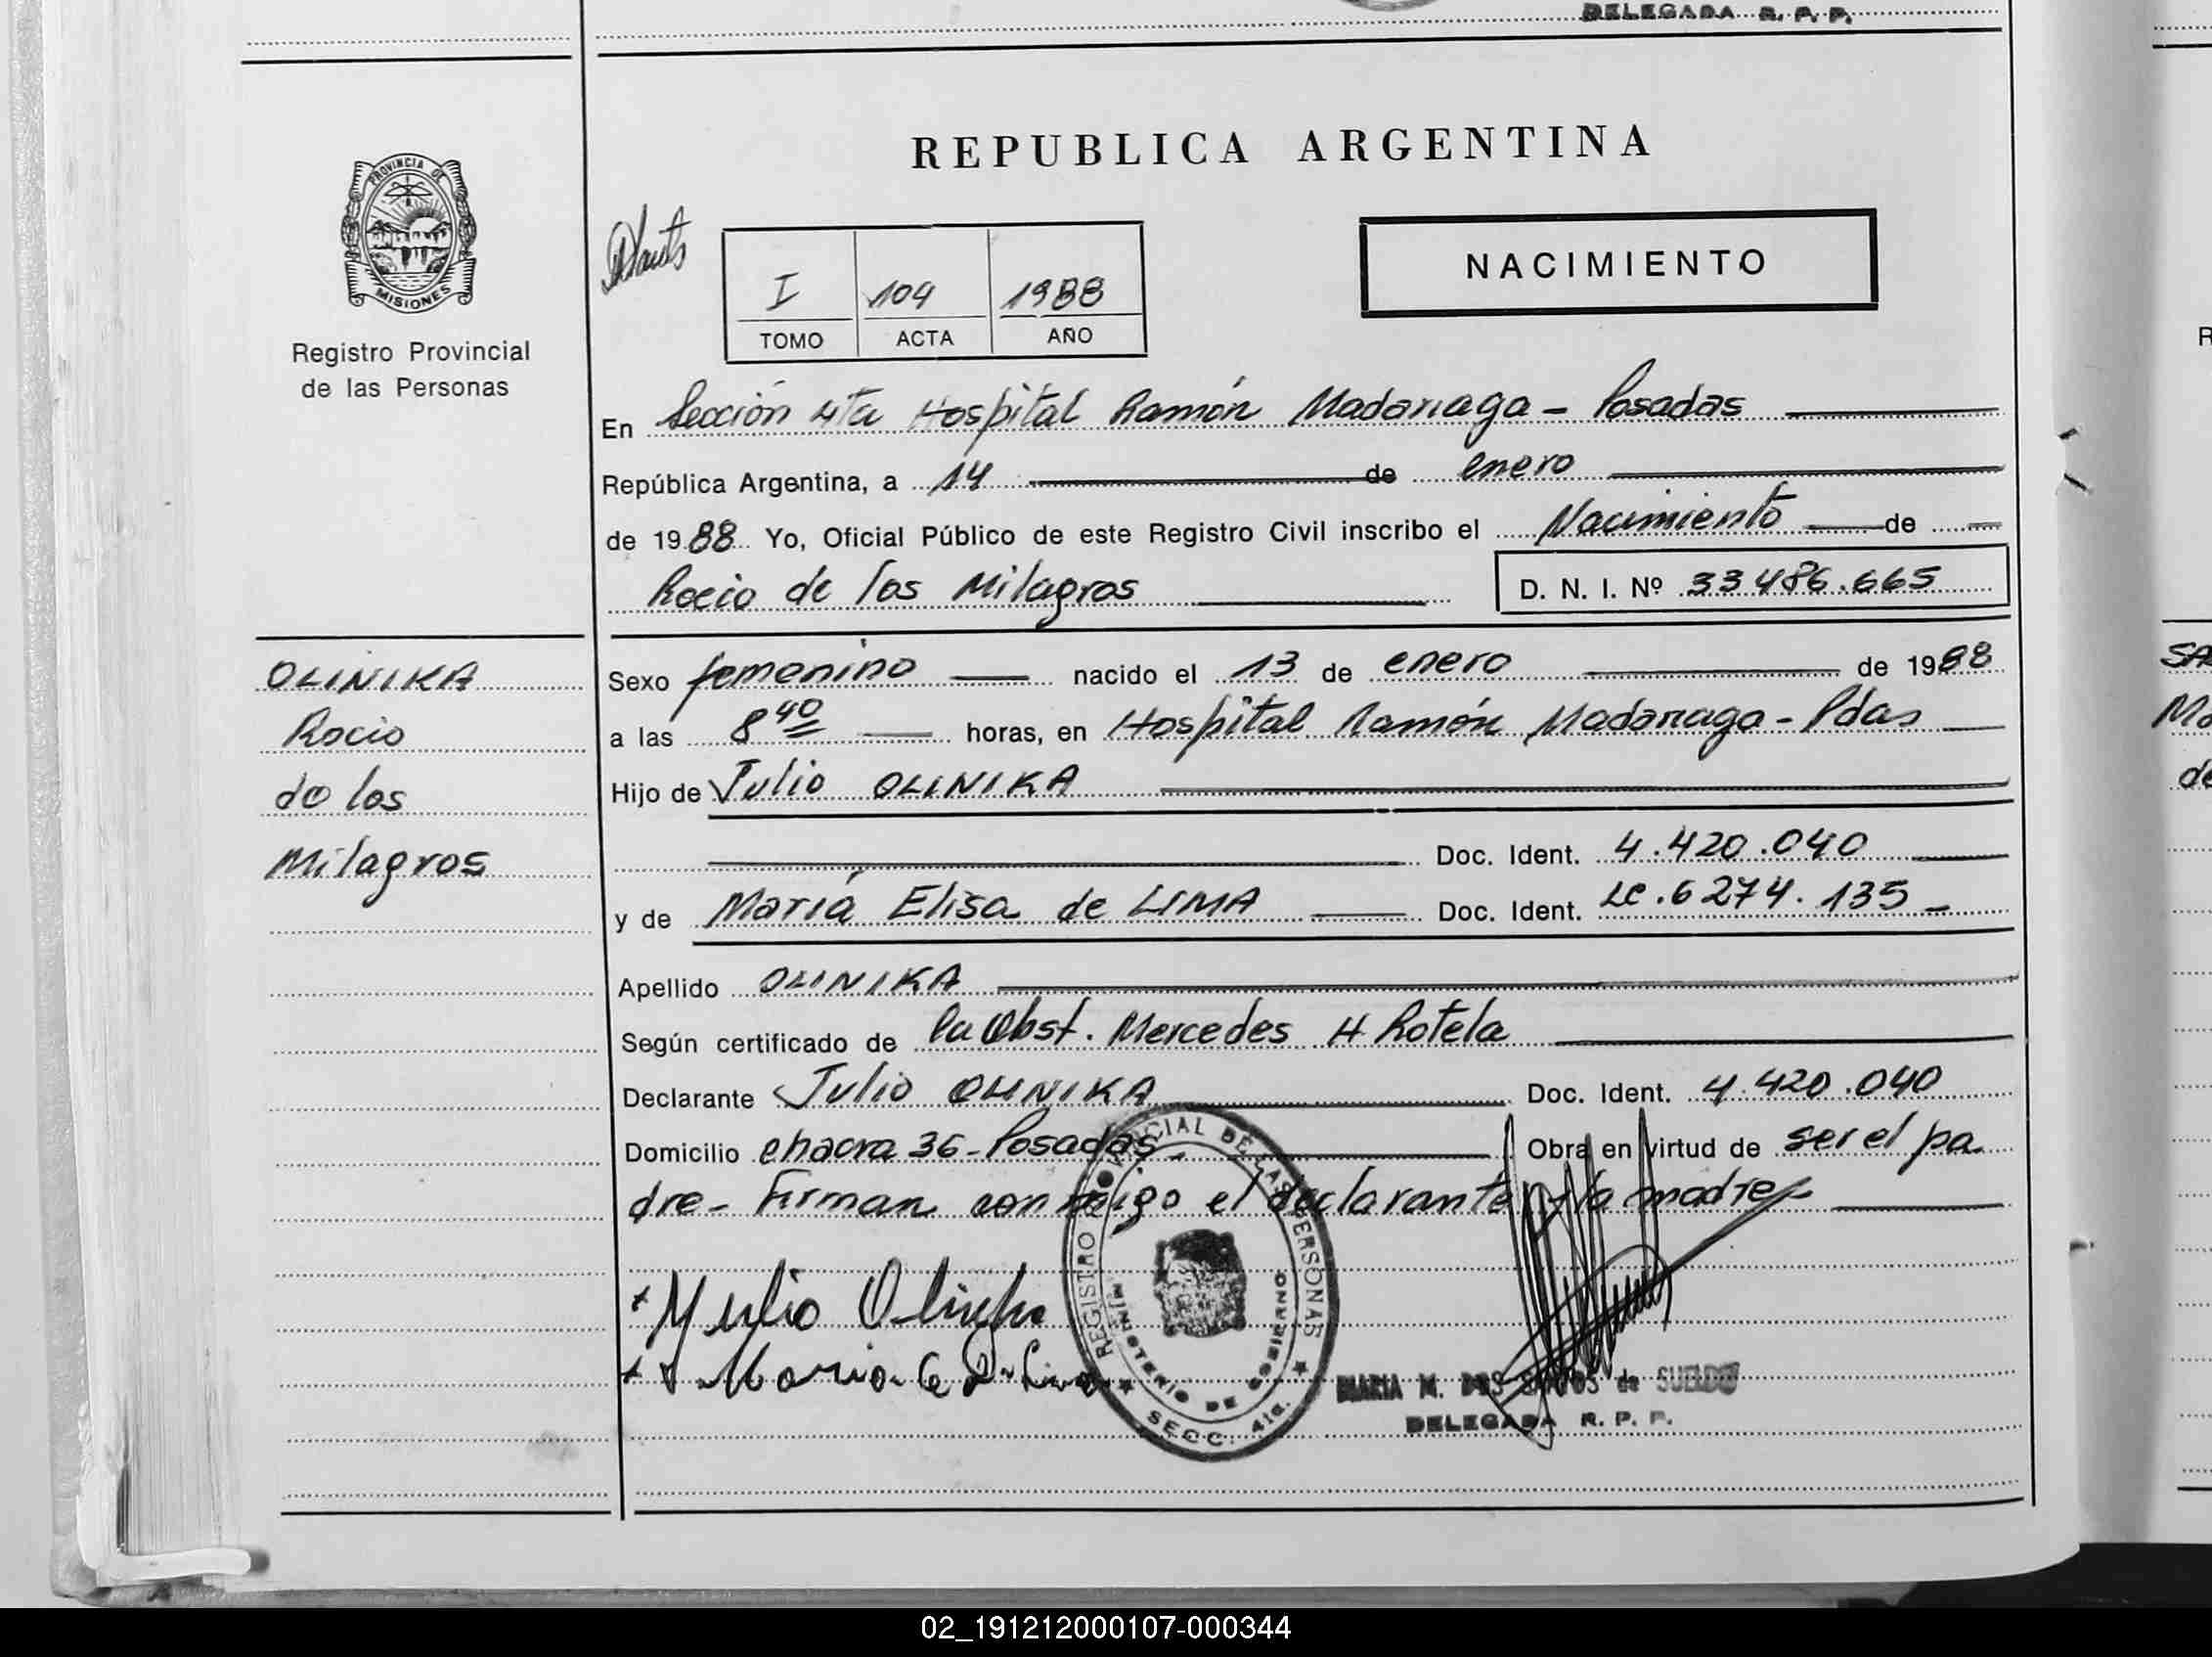 DELEGADA R. P. P.
PROVINCIA DE
MISIONES
Registro Provincial
de las Personas
REPUBLICA ARGENTINA
I 109 1988
TOMO ACTA AÑO
NACIMIENTO
En Sección 4ta Hospital Ramón Madariaga - Posadas
República Argentina, a 14 de enero
de 1988 Yo, Oficial Público de este Registro Civil inscribo el Nacimiento de
Rocio de los Milagros D. N. I. Nº 33486.665
OLINIKA
Rocio
de los
Milagros
Sexo femenino nacido el 13 de enero de 1988
a las 8 40 horas, en Hospital Ramón Madariaga - Pdas
Hijo de Julio OLINIKA
Doc. Ident. 4.420.040
y de María Elisa de LIMA Doc. Ident. LC.6274.135
Apellido OLINIKA
Según certificado de la Obst. Mercedes H Rotela
Declarante Julio OLINIKA Doc. Ident. 4.420.040
Domicilio chacra 36 - Posadas - Obra en virtud de ser el pa
dre - Firman conmigo el declarante y la madre
REGISTRO PROVINCIAL DE LAS PERSONAS
MINISTERIO DE GOBIERNO
SECC. 4ta.
MARIA M. DOS SANTOS de SUELDO
DELEGADA R. P. P.
SA
Ma
de
R
02_191212000107-000344